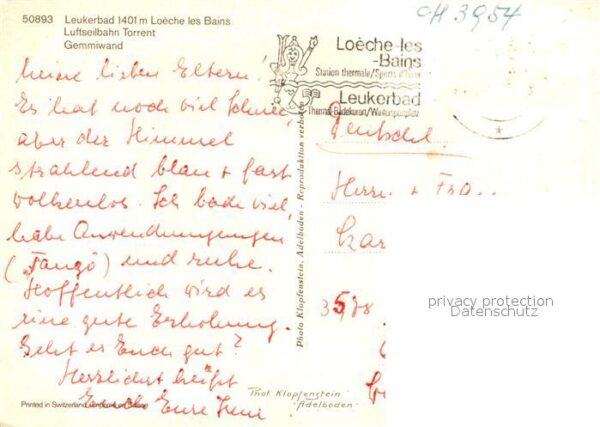 50893 Leukerbad 1401 m Loèche les Bains
Luftseilbahn Torrent
Gemmiwand
CH 3954
Loèche-les
-Bains
Station thermale/Sports d'hiver
Leukerbad
Thermal-Badekurort/Wintersportplatz
Meine lieben Eltern!
Es hat noch viel Schnee,
aber der Himmel
strahlend blau + fast
wolkenlos. Ich bade viel,
habe Anwendungungen
("Fango") und ruhe.
Hoffentlich wird es
eine gute Erholung.
Geht es Euch gut?
Herzlichst
Euch Eure Irene
Photo Klopfenstein, Adelboden - Reproduktion verboten
Deutschl.
Herrn + Fra
Czar
privacy protection
Datenschutz
Phot. Klopfenstein
"Adelboden"
Printed in Switzerland